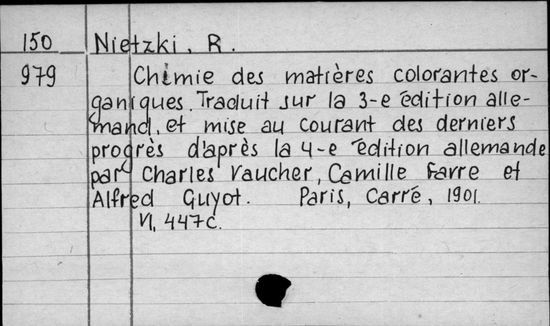 150 Nietzki, R.
979 Chimie des matières colorantes or-
ganiques. Traduit sur la 3-e édition alle-
mand, et mise au courant des derniers
progrès d'après la 4-e édition allemande
par Charles Vaucher, Camille Favre et
Alfred Guyot. Paris, Carré, 1901.
VI, 447c.